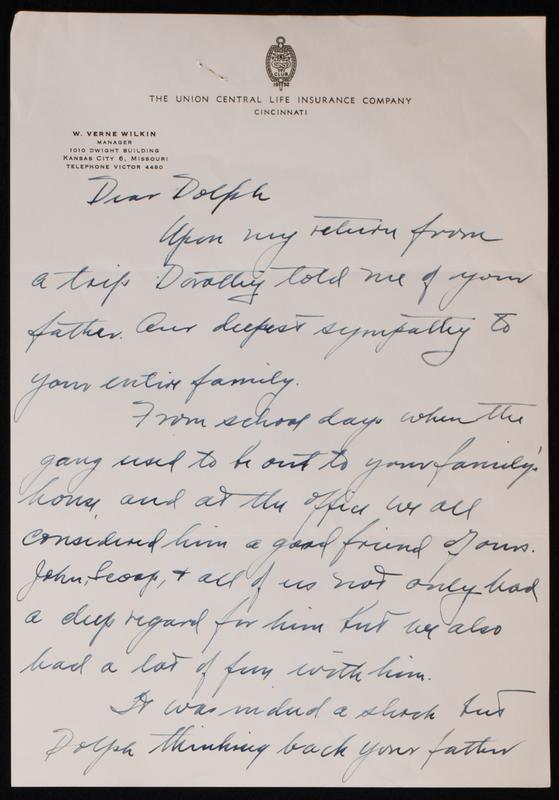 CLUB
19 52
THE UNION CENTRAL LIFE INSURANCE COMPANY
CINCINNATI
W. VERNE WILKIN
MANAGER
1010 DWIGHT BUILDING
KANSAS CITY 6, MISSOURI
TELEPHONE VICTOR 4480
Dear Dolph
Upon my return from
a trip Dorothy told me of your
father. Our deepest sympathy to
your entire family.
From school days when the
gang used to be out to your family's
house, and at the office we all
considered him a good friend of ours.
John, Scoop, + all of us not only had
a deep regard for him but we also
had a lot of fun with him.
It was indeed a shock but
Dolph thinking back your father